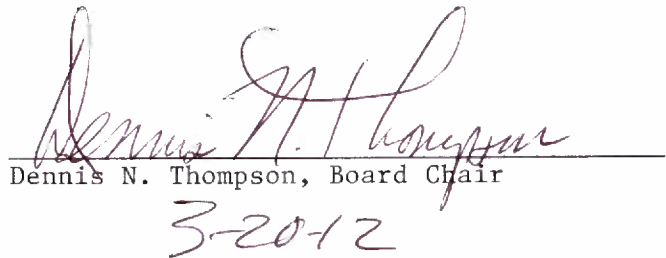 Dennis N. Thompson
Dennis N. Thompson, Board Chair
3-20-12